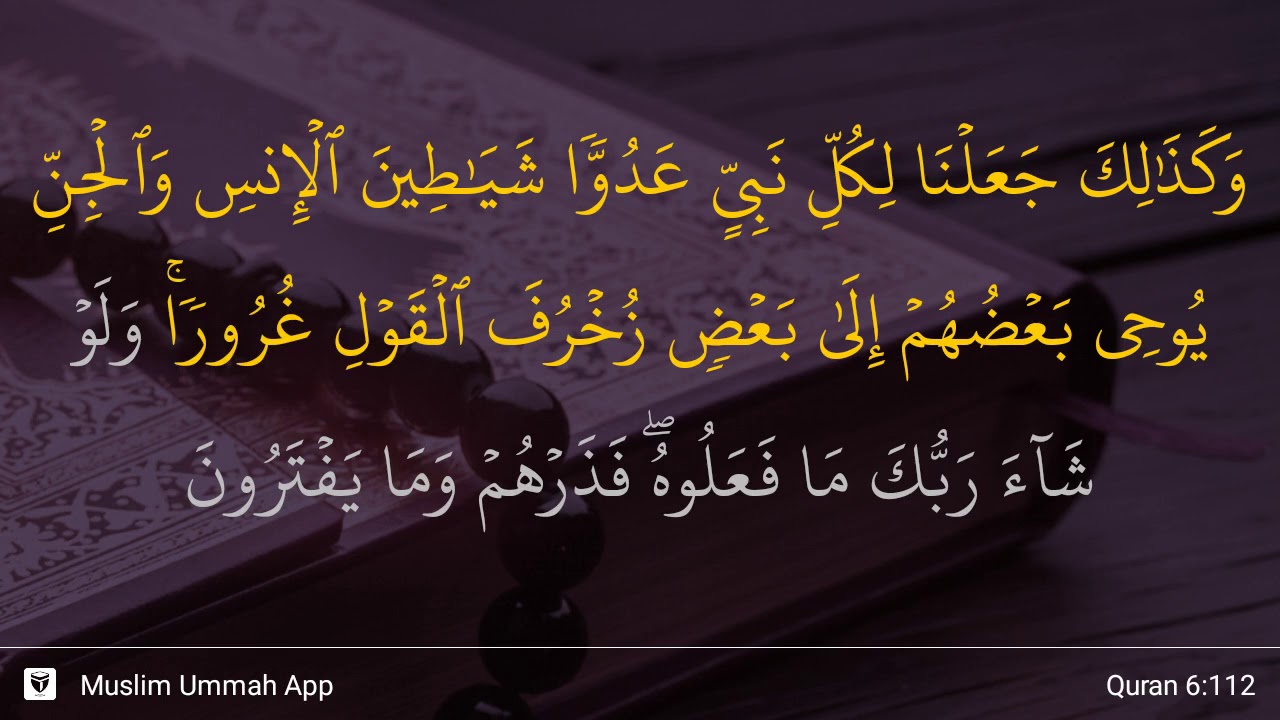 وَكَذَٰلِكَ جَعَلْنَا لِكُلِّ نَبِيٍّ عَدُوًّۭا شَيَـٰطِينَ ٱلْإِنسِ وَٱلْجِنِّ
يُوحِى بَعْضُهُمْ إِلَىٰ بَعْضٍۢ زُخْرُفَ ٱلْقَوْلِ غُرُورًۭا ۚ وَلَوْ
شَآءَ رَبُّكَ مَا فَعَلُوهُ ۖ فَذَرْهُمْ وَمَا يَفْتَرُونَ
Muslim Ummah App
Quran 6:112